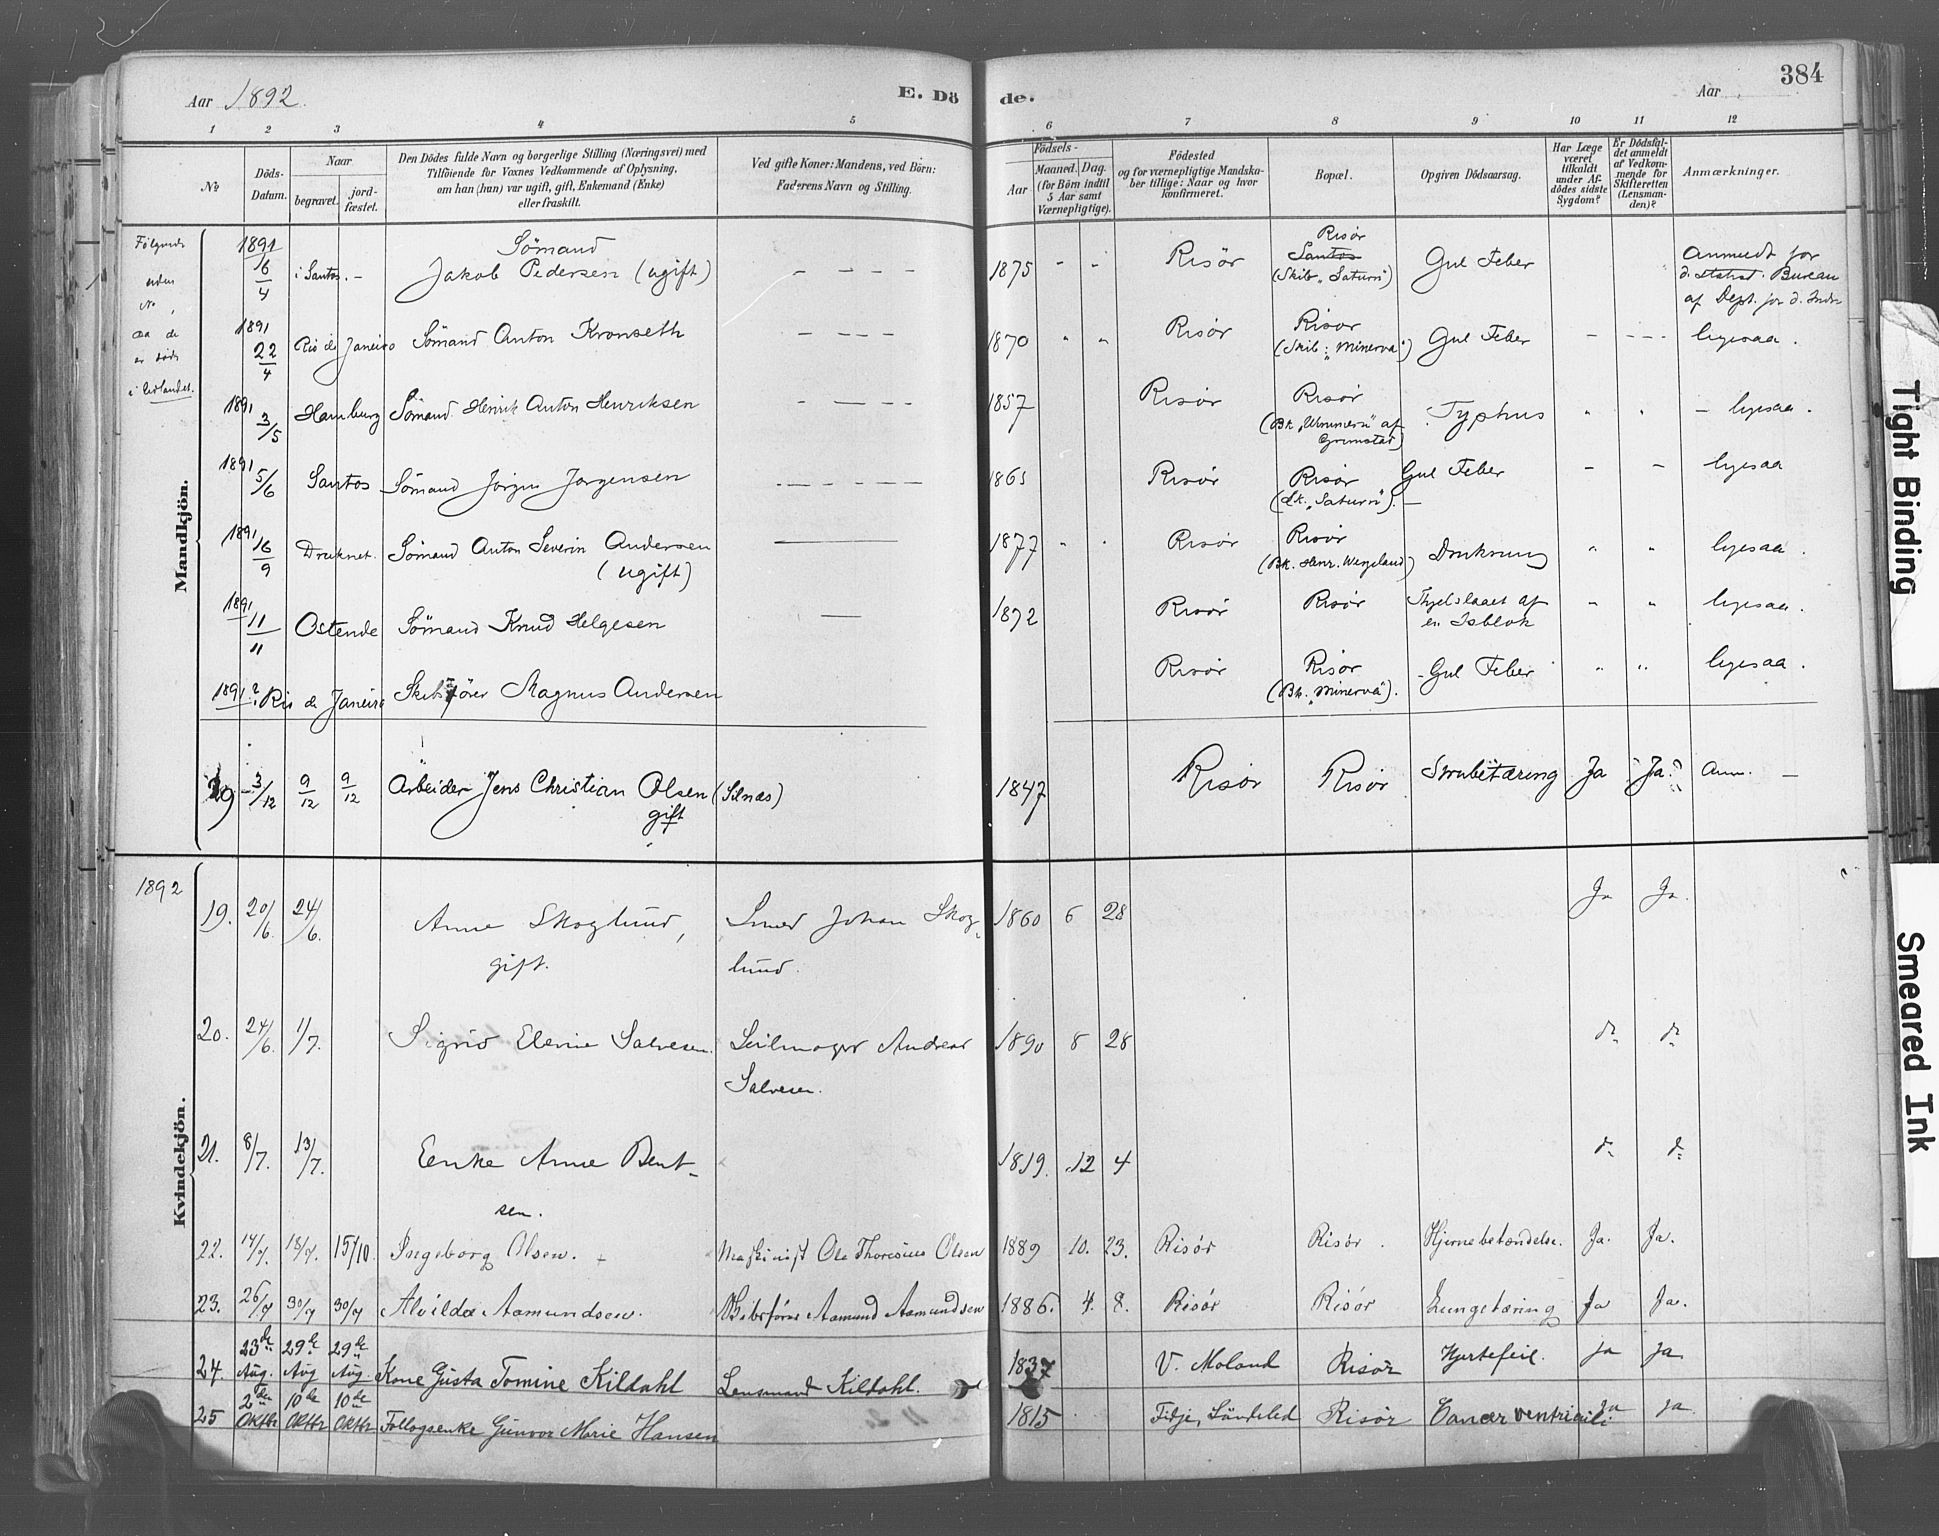 Aar 1892.
E. Dö
de.
Aar
384
1 2 3 4 5 6 7 8 9 10 11 12
No
Döds-Datum.
Naar
begravet.
jord-fæstet.
Den Dödes fulde Navn og borgerlige Stilling (Næringsvei) med
Tilföiende for Voxnes Vedkommende af Oplysning,
om han (hun) var ugift, gift, Enkemand (Enke)
eller fraskilt.
Ved gifte Koner: Mandens, ved Börn:
Faderens Navn og Stilling.
Födsels-
Aar
Maaned. Dag.
(for Börn indtil
5 Aar samt
Værnepligtige).
Födested
og for værnepligtige Mandska-
ber tillige: Naar og hvor
konfirmeret.
Bopæl.
Opgiven Dödsaarsag.
Har Læge
været
tilkaldt
under Af-
dödes sidste
Sygdom?
Er Dödsfal-
det anmeldt
af Vedkom-
mende for
Skifteretten
(Lensman-
den)?
Anmærkninger.
Mandkjön.
Følgende
uden
No,
da de
er døde
i Udlandet.
1891 16/4 i Santos. – Sömand Jakob Pedersen (ugift) – – – – 1875 " " Risör Risör Santos (Skib „Saturn") Gul Feber
d. statist. Bureau
af Dept. for d. Indre
1891 22/4 Rio de Janeiro Sömand Anton Kronseth – — — 1870 " " Risør Risør (Skib: „Minerva") Gul Feber – - - - ligesaa.
1891 3/5 Hamburg Sömand Henrik Anton Henriksen – — – – 1857 Risør Risör (Bk. af Grimstad) Typhus " " – ligesaa.
1891 5/6 Santos Sömand Jørgen Jørgensen 1865 Risør Risör (Sk. „Saturn"). Gul Feber – – ligesaa
1891 16/9 Druknet. Sömand Anton Severin Andersen (ugift) — 1877 " " Risør Risør (Bk. Henr. Wergeland) Drukning " " ligesaa.
1891 11/11 Ostende Sömand Knud Helgesen — 1872 Risör Risör Ihjelslaaet af en Isblok " " ligesaa.
1891? Rio de Janeiro Skibsfører Magnus Andersen Risør Risör (Bk. „Minerva"). Gul Feber " " ligesaa.
29 3/12 9/12 9/12 Arbeider Jens Christian Olsen (Silnæs) gift 1847 Risör Risör Strubetæring Ja Ja. Anm. –
Kvindekjön.
1892
19. 20/6. 24/6. Anne Skoglund, gift. Smed Johan Skog-lund. 1860 6 28 Ja Ja.
20. 24/6. 1/7. Sigrid Elenie Salvesen. Seilmager Andreas Salvesen. 1890 8 28 do do
21. 8/7. 13/7. Enke Anne Bent-sen. 1819. 12 4 do do
22. 14/7. 18/7. 15/10. Ingeborg Olsen. Maskinist Ole Thoresius Olsen 1889 10. 23. Risör Risör. Hjernebetændelse. Ja. Ja.
23. 26/7 30/7 30/7 Alvilda Aamundsen. Skibsfører Aamund Aamundsen 1886. 4. 8. Risör Risör Lungetæring Ja Ja.
24. 23de Aug. 29de Aug 29de Aug. Kone Gusta Tomine Kildahl Lensmand Kildahl. 1837 V. Moland Risör Hjertefeil. Ja Ja
25 2den Oktbr 10de Oktbr 10de Oktbr Fattigenke Gunvor Marie Hansen 1815 Fidje, Söndeled Risör Cancer ventriculi Ja Ja
Tight Binding
Smeared Ink